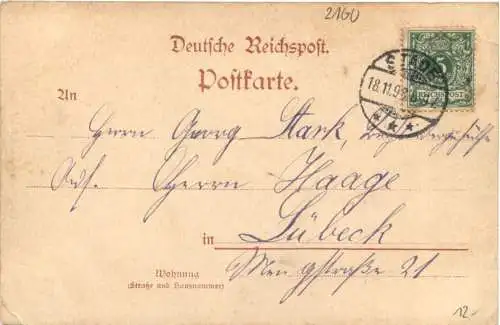 2160
Deutsche Reichspost.
Postkarte.
STADE
18.11.99
5
REICHSPOST
An
Herrn Georg Stark,
Adr. Herrn Haage
in Lübeck
Mengstraße 21
Wohnung
(Straße und Hausnummer)
12.-